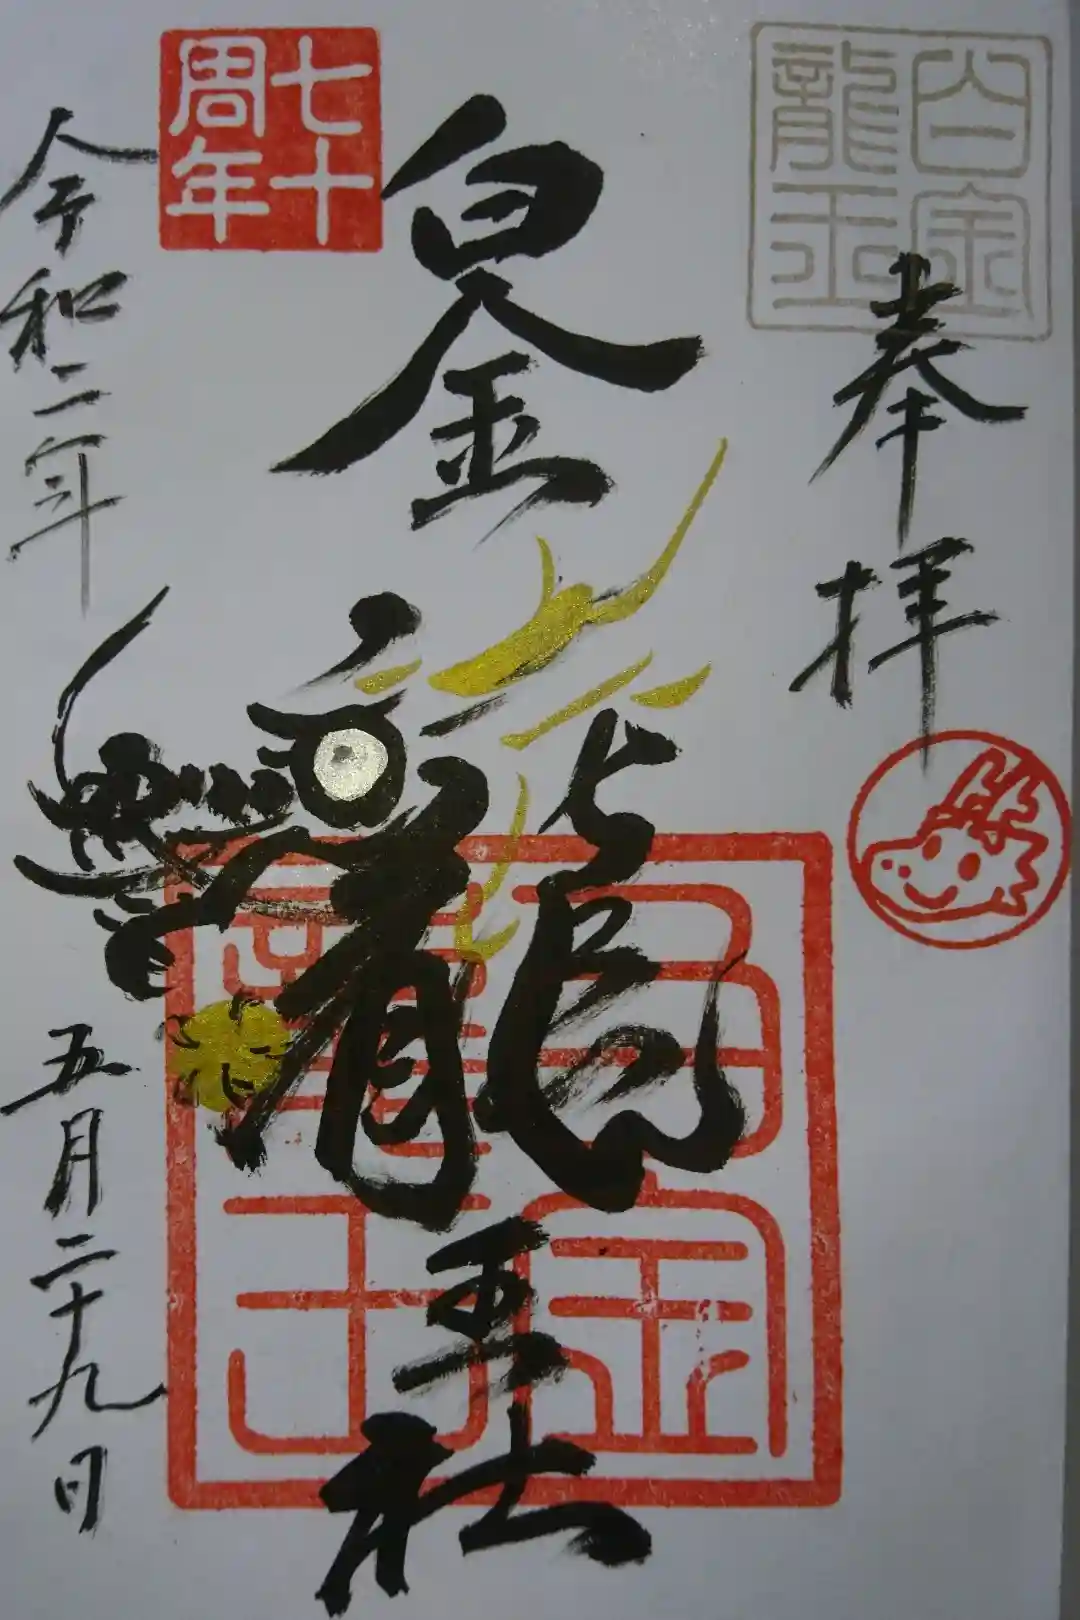 奉拝
白金
龍王
白金龍王社
白金
龍王
七十
周年
令和二年
五月二十九日